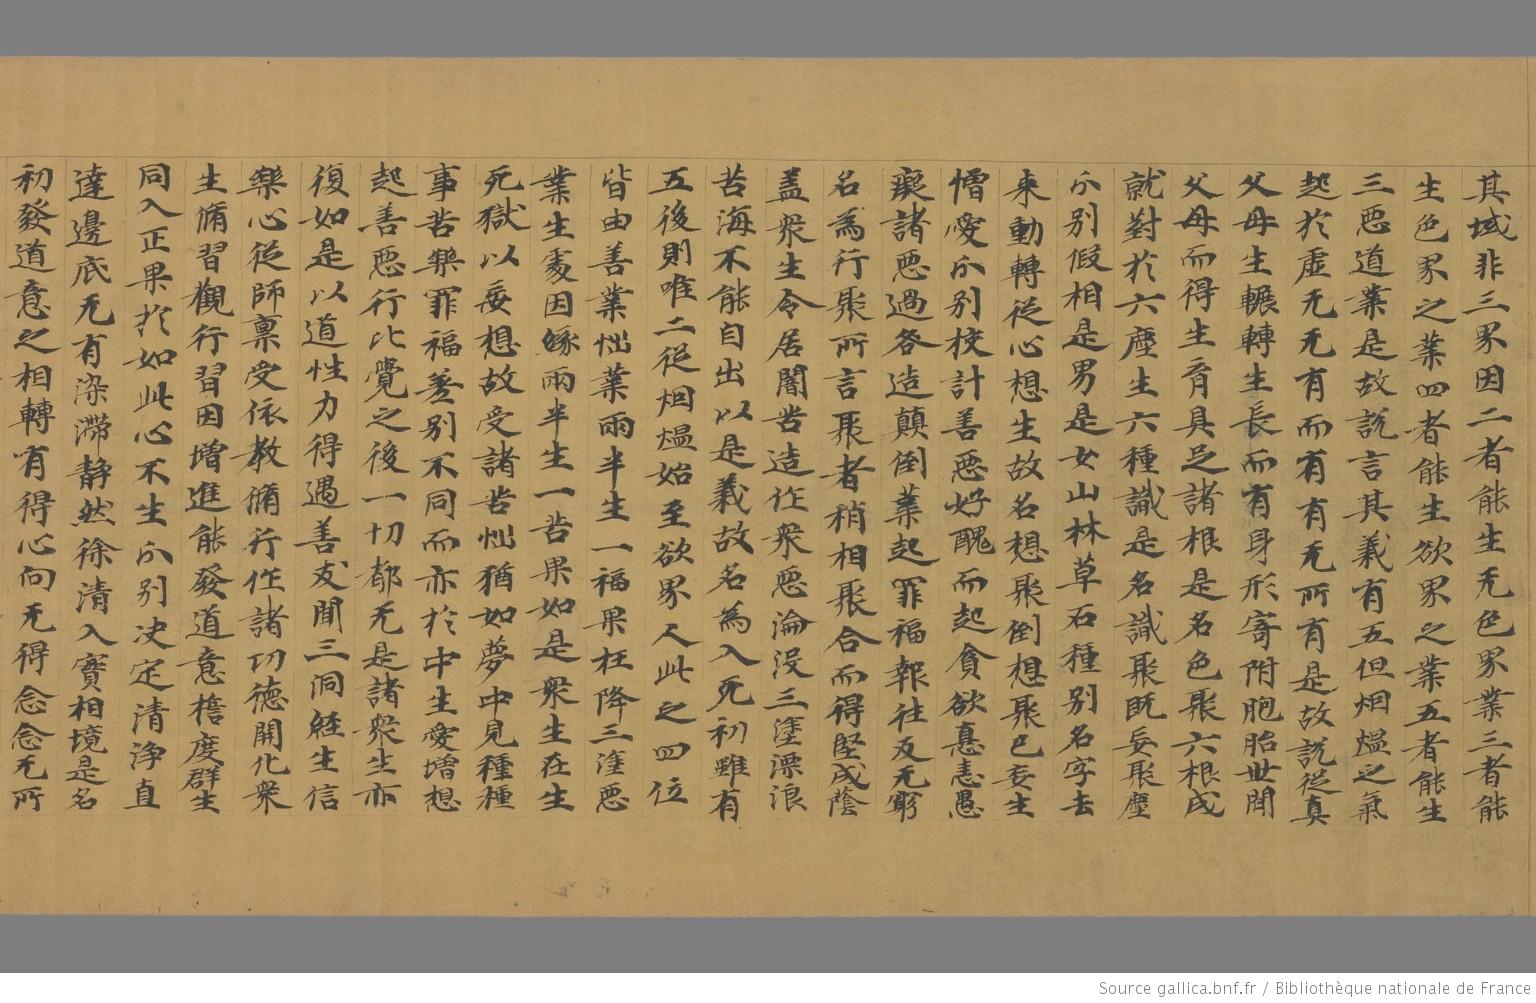 其域非三界因二者能生无色界業三者能
生色界之業四者能生欲界之業五者能生
三惡道業是故説言其義有五但烟熅之氣
起於虛无无有而有有无所有是故説從真
父母生輾轉生長而有身形寄附胞胎世間
父母而得生育具足諸根是名色聚六根成
就對於六塵生六種識是名識聚既妄聚塵
分別假相是男是女山林草石種別名字去
來動轉從心想生故名想聚倒想聚已妄生
憎愛分別校計善惡好醜而起貪欲恚恚愚
癡諸惡過咎造顛倒業起罪福報往反无窮
名為行聚所言聚者稍相聚合而得堅成蔭
蓋衆生令居闇苦造作衆惡淪没三塗漂浪
苦海不能自出以是義故名為入死初雖有
五後則唯二從烟熅始至欲界人此之四位
皆由善業惱業兩半生一福果枉降三塗惡
業生處因緣兩半生一苦果如是衆生在生
死獄以妄想故受諸苦惱猶如夢中見種種
事苦樂罪福差别不同而亦於中生愛增想
起善惡行比覺之後一切都无是諸衆生亦
復如是以道性力得遇善友聞三洞經生信
樂心從師稟受依教脩行作諸功德開化衆
生脩習觀行習因增進能發道意檐度群生
同入正果於如此心不生分别决定清浄直
達邊底无有染滯静然徐清入寶相境是名
初發道意之相轉有得心向无得念念无所